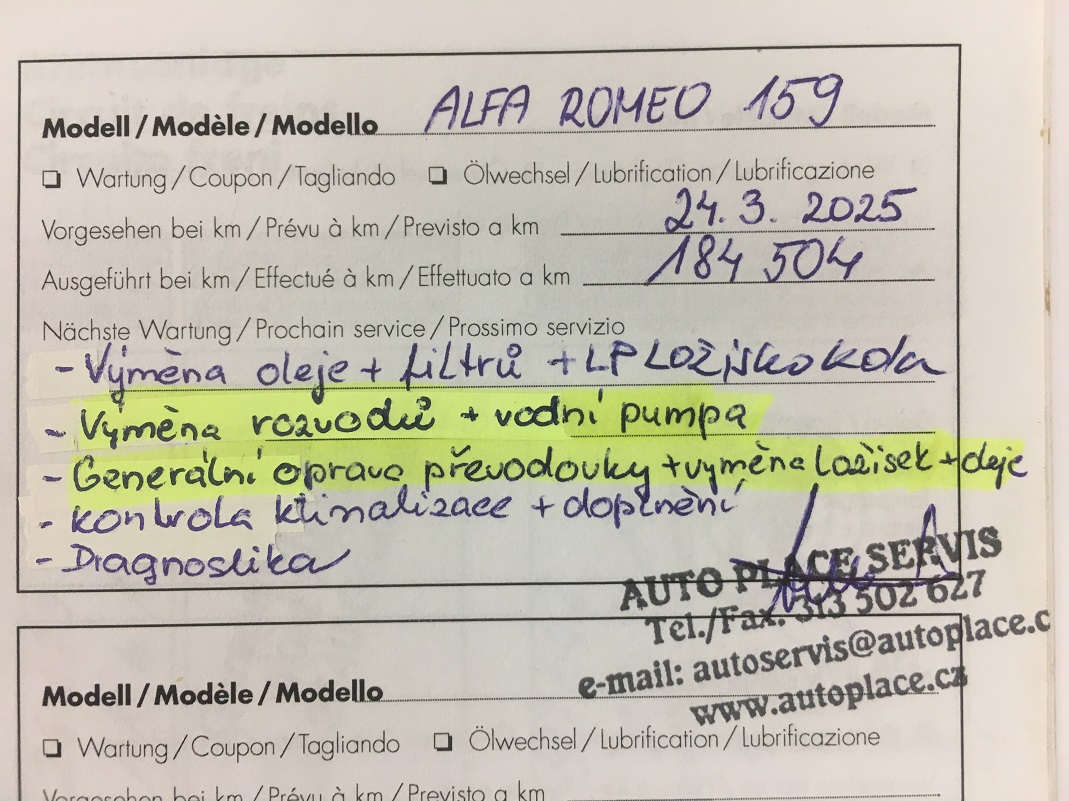 Modell / Modèle / Modello ALFA ROMEO 159
❏ Wartung / Coupon / Tagliando ❏ Ölwechsel / Lubrification / Lubrificazione
Vorgesehen bei km / Prévu à km / Previsto a km 24. 3. 2025
Ausgeführt bei km / Effectué à km / Effettuato a km 184 504
Nächste Wartung / Prochain service / Prossimo servizio
- Výměna oleje + filtrů + LP Ložisko kola
- Výměna rozvodů + vodní pumpa
- Generální oprava převodovky + vyměna ložisek + oleje
- kontrola klimatizace + doplnění
- Diagnostika
AUTO PLACE SERVIS
Tel./Fax: 313 502 627
e-mail: autoservis@autoplace.c
www.autoplace.cz
Modell / Modèle / Modello
❏ Wartung / Coupon / Tagliando ❏ Ölwechsel / Lubrification / Lubrificazione
Vorgesehen bei km / Prévu à km / Previsto a km